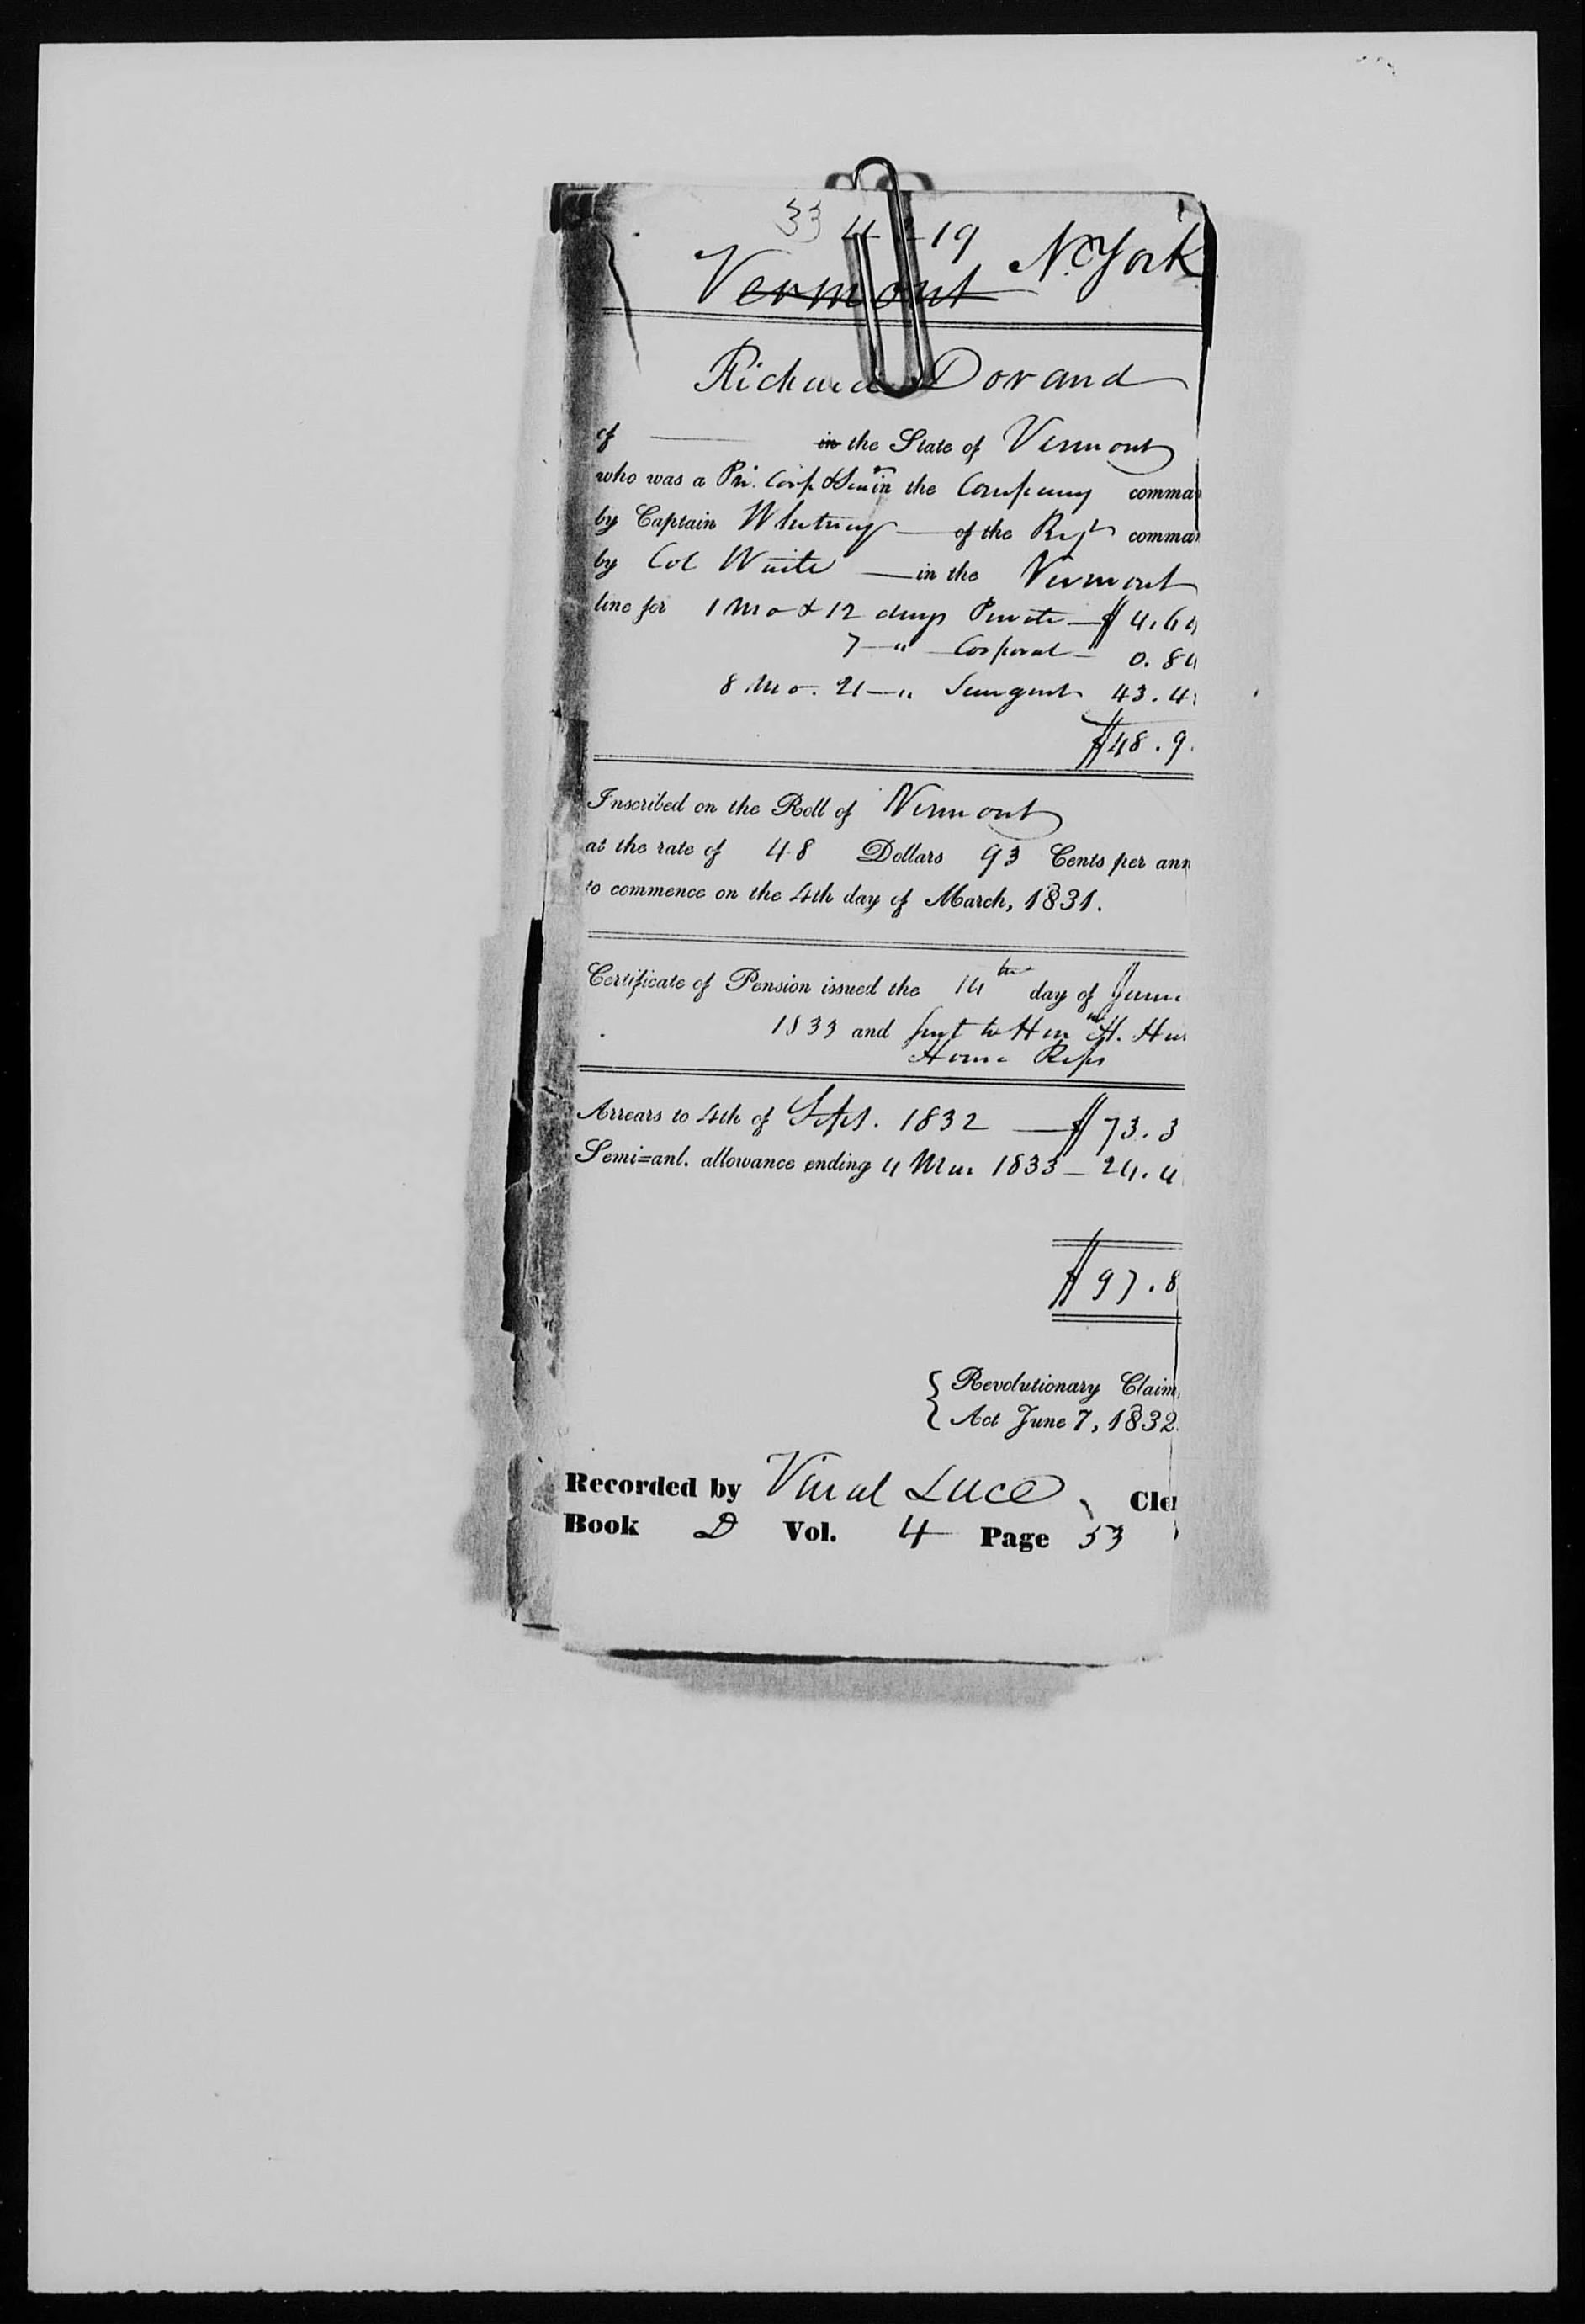 33 4 19
Vermont N. York
Richard Dorand
of in the State of Vermont
who was a Pri. Corp & in the Company comman
by Captain Whitney of the Regt comman
by Col Waite in the Vermont
line for 1 Mo & 12 days Private $ 4.6
7 " Corporal 0.8
8 Mo. 21 " Sergeant 43.4
$48.9
Inscribed on the Roll of Vermont
at the rate of 48 Dollars 93 Cents per ann
to commence on the 4th day of March, 1831.
Certificate of Pension issued the 14th day of June
1833 and sent to Hon H.
House Reps
Arrears to 4th of Sept. 1832 $ 73.3
Semi=anl. allowance ending 4 Mar 1833 24.4
$ 97.8
Revolutionary Claim
Act June 7, 1832.
Recorded by Luce, Cler
Book D Vol. 4 Page 53